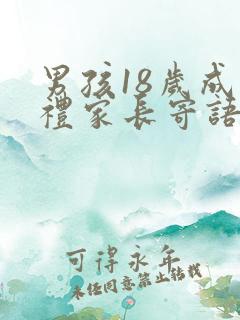 男孩18歲成
禮家長寄語
可得永年
未经同意禁止转载